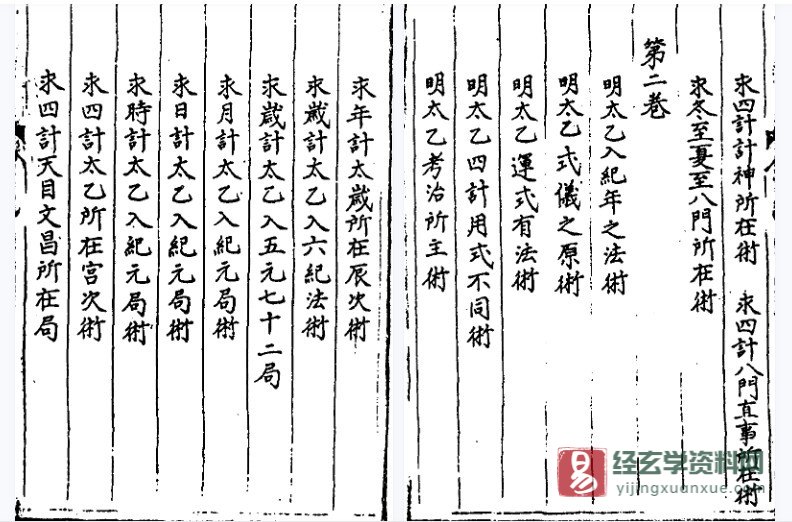 求四計計神所在術　求四計八門直事所在術
求冬至夏至八門所在術
第二巻
明太乙入紀年之法術
明太乙式儀之原術
明太乙運式有法術
明太乙四計用式不同術
明太乙考治所主術
求年計太歲所在辰次術
求歲計太乙入六紀法術
求歲計太乙入五元七十二局
求月計太乙入紀元局術
求日計太乙入紀元局術
求時計太乙入紀元局術
求四計太乙所在宮次術
求四計天目文昌所在局
易
经玄学资料网
yijingxuanxue.com